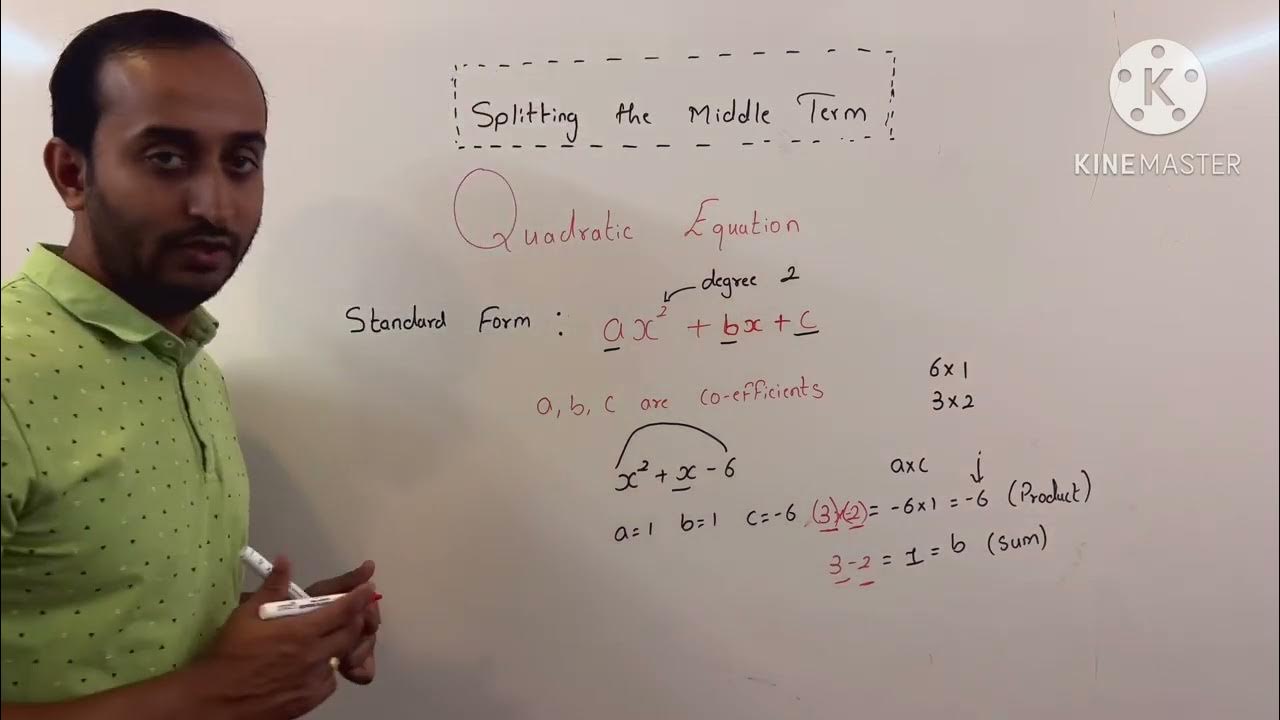 Splitting the Middle Term
K
KINEMASTER
Quadratic Equation
degree 2
Standard Form : ax² + bx + c
a, b, c are co-efficients
6x1
3x2
x² + x - 6
axc
a=1 b=1 c=-6 (3)x(-2) = -6x1 = -6 (Product)
3-2 = 1 = b (sum)